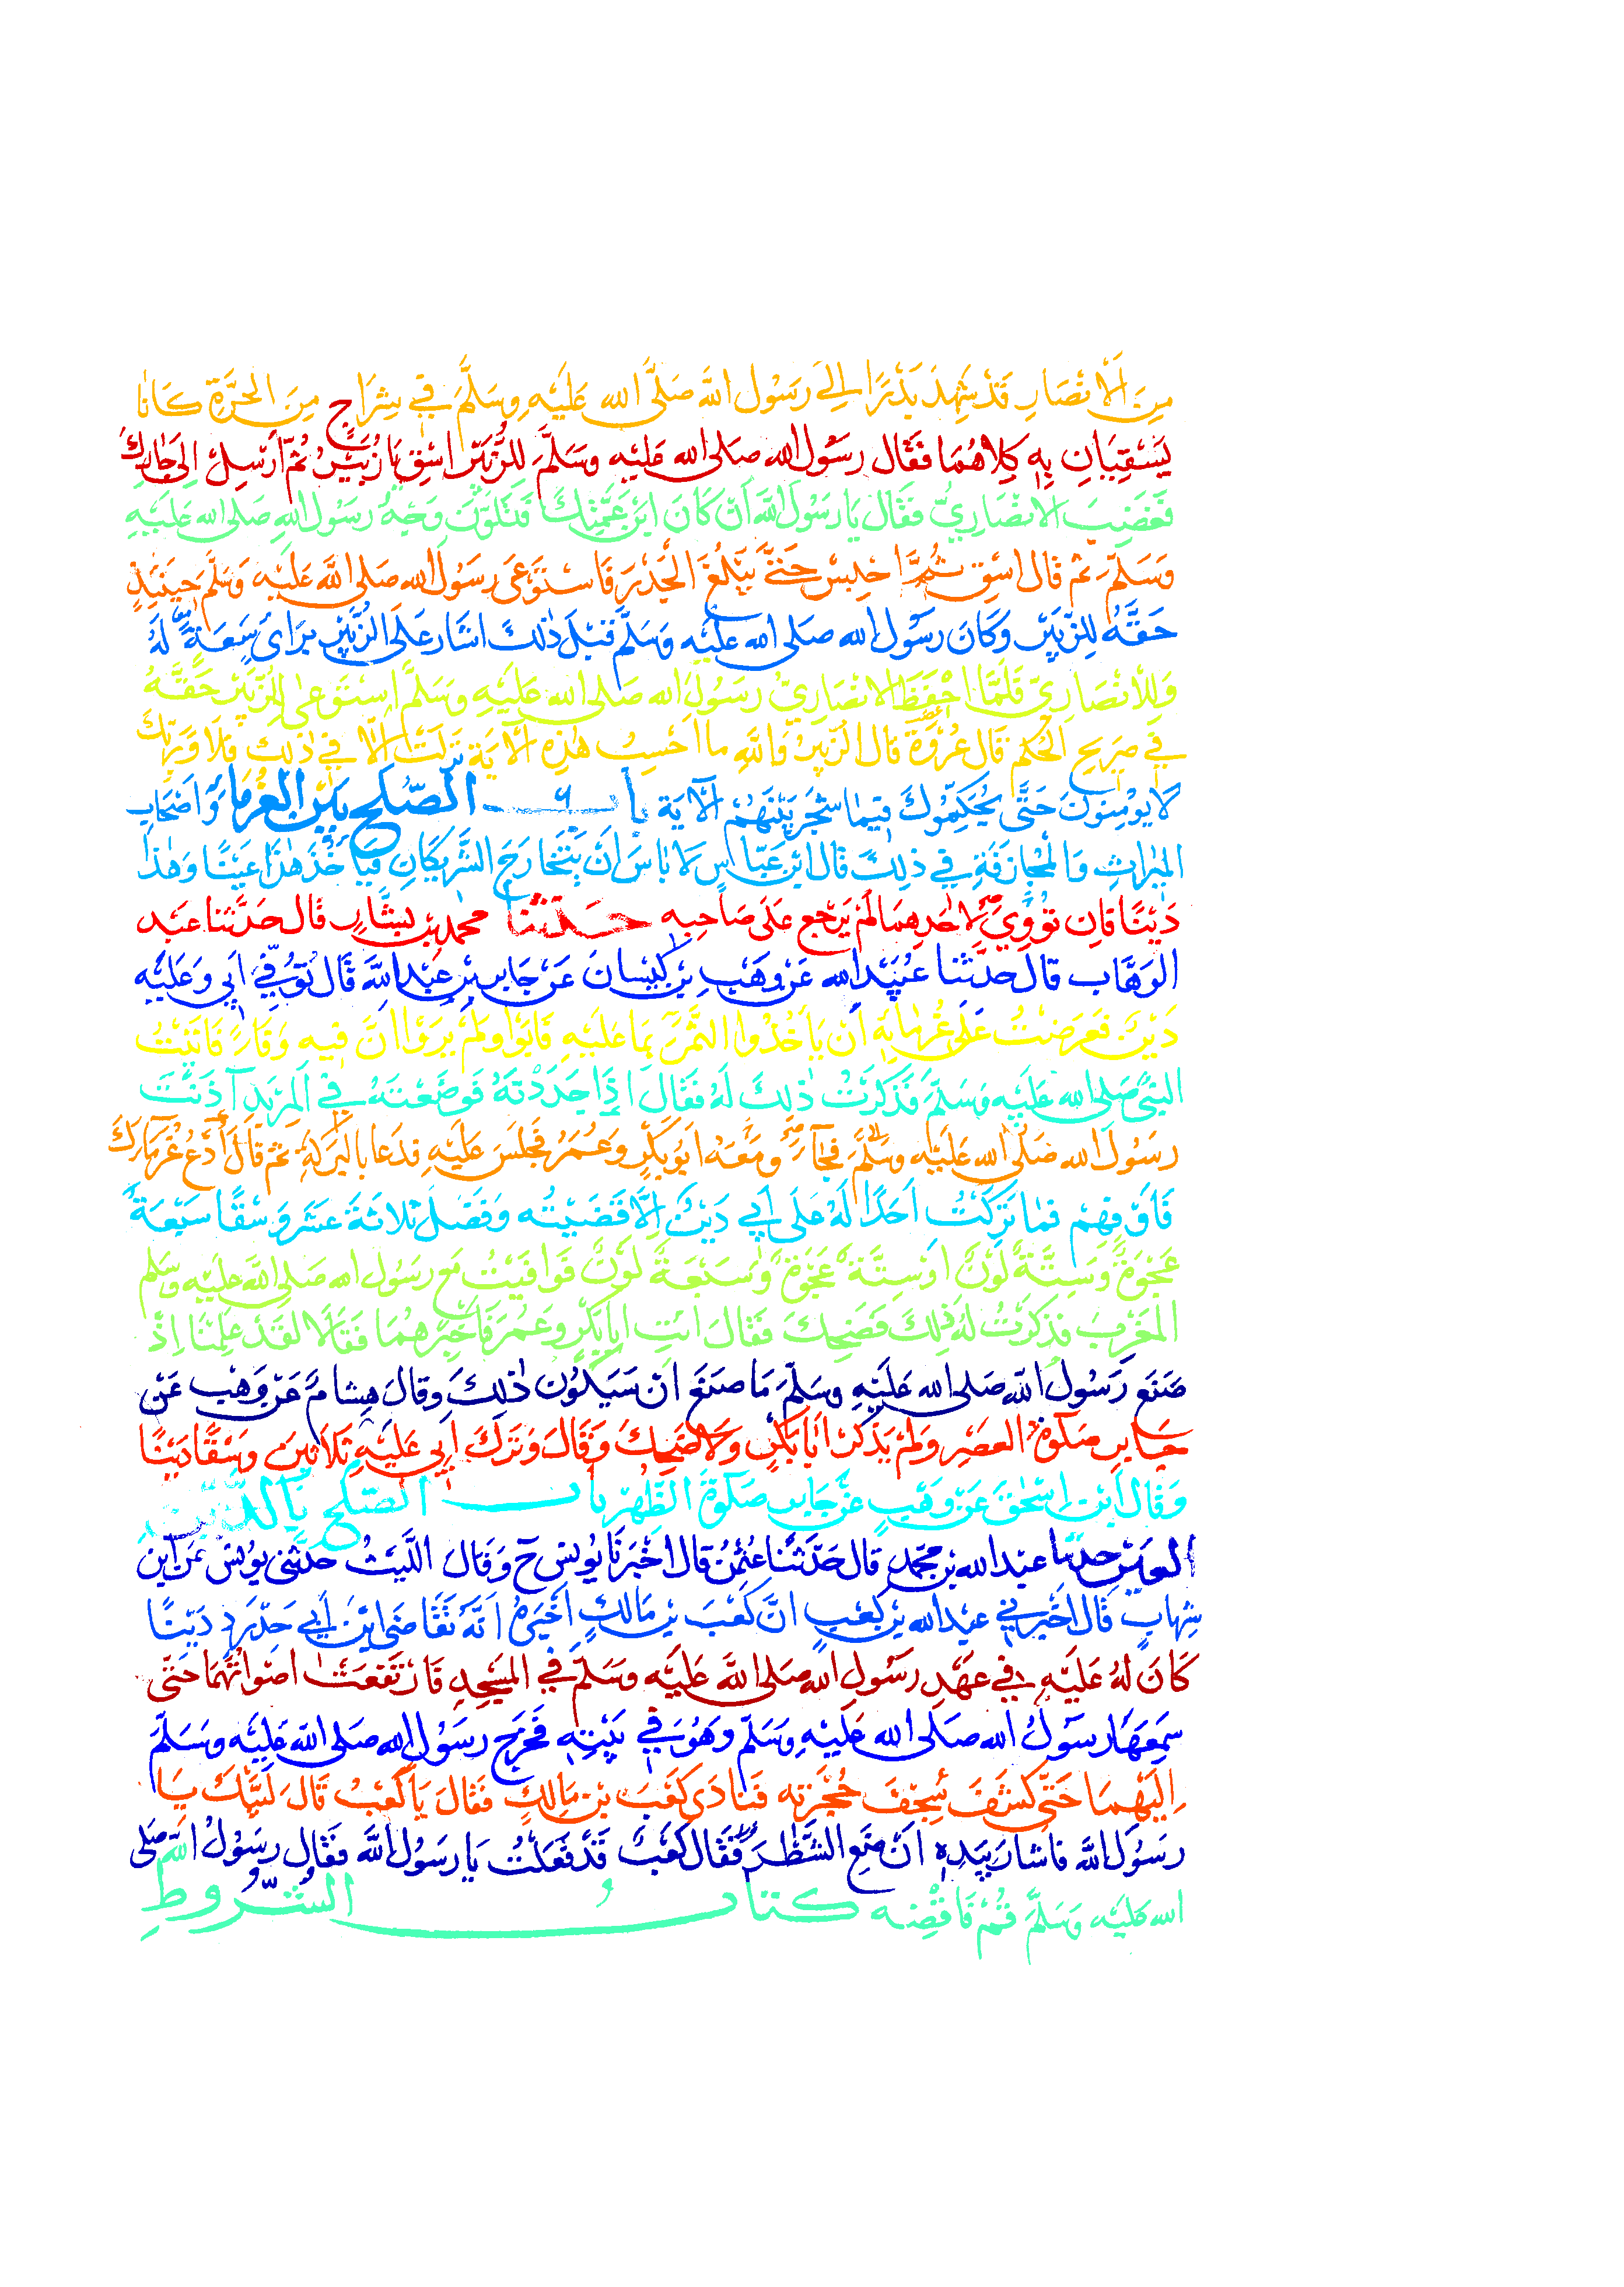 مِنَ الْاَنْصَارِ قَدْ شَهِدَ بَدْرًا اِلٰى رَسُوْلِ اللهِ صَلَّى الله عَلَيْهِ وَسَلَّمَ فِي شِرَاجٍ مِنَ الْحَرَّةِ كَانَا
يَسْقِيَانِ بِهٖ كِلَاهُمَا فَقَال رسُوْل الله صلى الله عليْهِ وَسَلَّمَ لِلزُّبَيْرِ اسْقِ يَا زُبَيْرُ ثُمَّ اَرْسِلْ اِلٰى جَارِكَ
فَغَضِبَ الانْصَارِيُّ فقَال يَا رَسُوْلَ اللهِ اَنْ كَانَ ابْنَ عَمَّتِكَ فَتَلَوَّنَ وَجْهُ رَسُوْلِ اللهِ صلى الله عليْهِ
وَسَلَّمَ ثم قال اسْقِ ثُمَّ احْبِسْ حَتّٰى يَبْلُغَ الْجَدْرَ فَاسْتَوْعٰى رسُوْلُ الله صلى الله عَلَيْهِ وَسَلَّمَ حِيْنَئِذٍ
حَقَّهٗ لِلزُّبَيْرِ وَكَانَ رسُوْلُ الله صلى الله عليْه وَسَلَّمَ قَبْلَ ذٰلِكَ اشَارَ عَلَى الزُّبَيْرِ بِرَأىٍ سَعَةٍ لَهٗ
وَلِلْاَنْصَارِيِّ فَلَمَّا احْفَظَ الانْصَارِيُّ رسُوْلَ الله صَلى الله عَلَيْهِ وَسَلَّمَ اسْتَوْعٰى لِلزُّبَيْرِ حَقَّهٗ
فِي صَرِيْحِ الْحُكْمِ قَالَ عُرْوَةُ قَالَ الزُّبَيْرُ وَاللهِ ما اَحْسِبُ هٰذِهِ الْاٰيَةَ نَزَلَتْ اِلَّا فِي ذٰلِكَ فَلَا وَرَبِّكَ
لَا يُوْمِنُوْنَ حَتّٰى يُحَكِّمُوْكَ فِيْمَا شَجَرَ بَيْنَهُمْ الْاٰيَةَ بابُ الصُّلْحِ بَيْنَ الْغُرَمَاءِ وَاَصْحَابِ
الْمِيْرَاثِ وَالْمُجَازَفَةِ فِي ذٰلِكَ قَالَ ابْنُ عَبَّاسٍ لَا بَاسَ اَنْ يَتَخَارَجَ الشَّرِيْكَانِ فَيَاْخُذَ هٰذَا عَيْنًا وَهٰذَا
دَيْنًا فَاِنْ تُوُفِّيَ لِاَحَدِهِمَا لَمْ يَرْجِعْ عَلٰى صَاحِبِهِ حَدَّثَنَا محمدُ بْنُ بَشَّارٍ قَال حَدَّثَنا عَبْد
الْوَهَّاب قَالَ حَدَّثَنا عُبَيْدُ الله عَنْ وَهْبِ بْنِ كَيْسَانَ عَنْ جَابِرِ بْنِ عَبْدِ اللهِ قَالَ تُوُفِّيَ اَبِي وَعَلَيْهِ
دَيْنٌ فَعَرَضْتُ عَلٰى غُرَمَائِهٖ اَن يَاْخُذُوا الثَّمْرَ بِمَا عَلَيْهِ فَابَوْا وَلَمْ يَرَوْا اَنَّ فِيهِ وَفَاءً فَاتَيْتُ
النَّبِيَّ صلى الله عَلَيْهِ وَسَلَّمَ فَذَكَرْتُ ذٰلِكَ لَهٗ فَقَالَ اِذَا جَدَدْتَهٗ فَوَضَعْتَهٗ فِي الْمِرْبَدِ اٰذَنْتَ
رَسُوْلَ الله صَلَّى الله عَلَيْهِ وَسَلَّمَ فَجَاءَ وَمَعَهٗ اَبُوْ بَكْرٍ وَعُمَرُ فَجَلَسَ عَلَيْهِ فدَعَا بِالْبَرَكَةِ ثُمَّ قَالَ ادْعُ غُرَمَاءَكَ
فَاَوْفِهِمْ فَمَا تَرَكْتُ اَحَدًا لَهٗ عَلٰى اَبِي دَيْنٌ اِلَّا قَضَيْتُه وَفَضَلَ ثَلَاثَةَ عَشَرَ وَسْقًا سَبْعَةٌ
عَجْوَةٌ وَسِتَّةٌ لَوْنٌ اَوْ سِتَّةٌ عَجْوَةٌ وَسَبْعَةٌ لَوْنٌ فَوَافَيْتُ مَعَ رسُوْلِ الله صَلى الله عليْهِ وسَلم
الْمَغْرِبَ فَذَكَرْتُ لَهٗ ذٰلِكَ فَضَحِكَ فَقَالَ ائْتِ اَبَا بَكْرٍ وَعُمَرَ فَاَخْبِرْهُمَا فَقَالَا لَقَدْ عَلِمْنَا اِذْ
صَنَعَ رَسُوْلُ اللهِ صلى الله عَلَيْهِ وسَلَّمَ مَا صَنَعَ اَنْ سَيَكُوْن ذٰلِكَ وقالَ هِشَامٌ عَنْ وَهْبٍ عَنْ
جَابِرٍ صَلٰوةَ الْعَصْرِ وَلَمْ يَذْكُرْ اَبَا بَكْرٍ وَلَا ضَحِكَ وَقَالَ وَتَرَكَ اَبِي عَلَيْهِ ثَلَاثِيْنَ وَسْقًا دَيْنًا
وَقَال ابْنُ اِسْحٰقَ عَنْ وَهْبٍ عَنْ جَابِرٍ صَلٰوةَ الظُّهْرِ باب الصُّلْحِ بِالدَّيْنِ
وَالْعَيْنِ حدثنا عبْد الله بن مُحَمَّدٍ قَال حَدَّثَنَا عُثْمٰنُ قال اخْبَرَنَا يُوْنس ح وَقَال اللَّيْثُ حدثني يُوْنُس عَن ابْن
شِهَابٍ قَال اَخْبَرَنِي عَبْد الله بْن كَعْبٍ انَّ كَعْبَ بْن مَالِكٍ اَخْبَرَهٗ اَنَّهٗ تَقَاضٰى ابْنَ اَبِي حَدْرَدٍ دَيْنًا
كَانَ لَهٗ عَلَيْهِ فِي عَهْدِ رَسُوْلِ الله صَلى الله عَلَيْهِ وَسَلَّمَ فِي الْمَسْجِدِ فَارْتَفَعَتْ اَصْوَاتُهُمَا حَتّٰى
سَمِعَهَا رَسُوْلُ الله صَلَى الله عَلَيْهِ وَسَلَّمَ وَهُوَ فِي بَيْتِهٖ فَخَرَجَ رسُوْل الله صَلى الله عَلَيْهِ وَسَلَّمَ
اِلَيْهِمَا حَتّٰى كَشَفَ سِجْفَ حُجْرَتِه فَنَادٰى كَعْبَ بْن مَالِكٍ فَقَالَ يَا كَعْبُ قَالَ لَبَّيْكَ يَا
رسُوْلَ اللهِ فاشَارَ بِيَدِهٖ اَنْ ضَعِ الشَّطْرَ فَقَال كَعْبٌ قَدْ فَعَلْتُ يَا رسُوْلَ اللهِ فَقَال رسُوْلُ اللهِ صَلى
الله عَلَيْه وَسَلَّمَ قُمْ فَاقْضِه كتابُ الشُّرُوْطِ